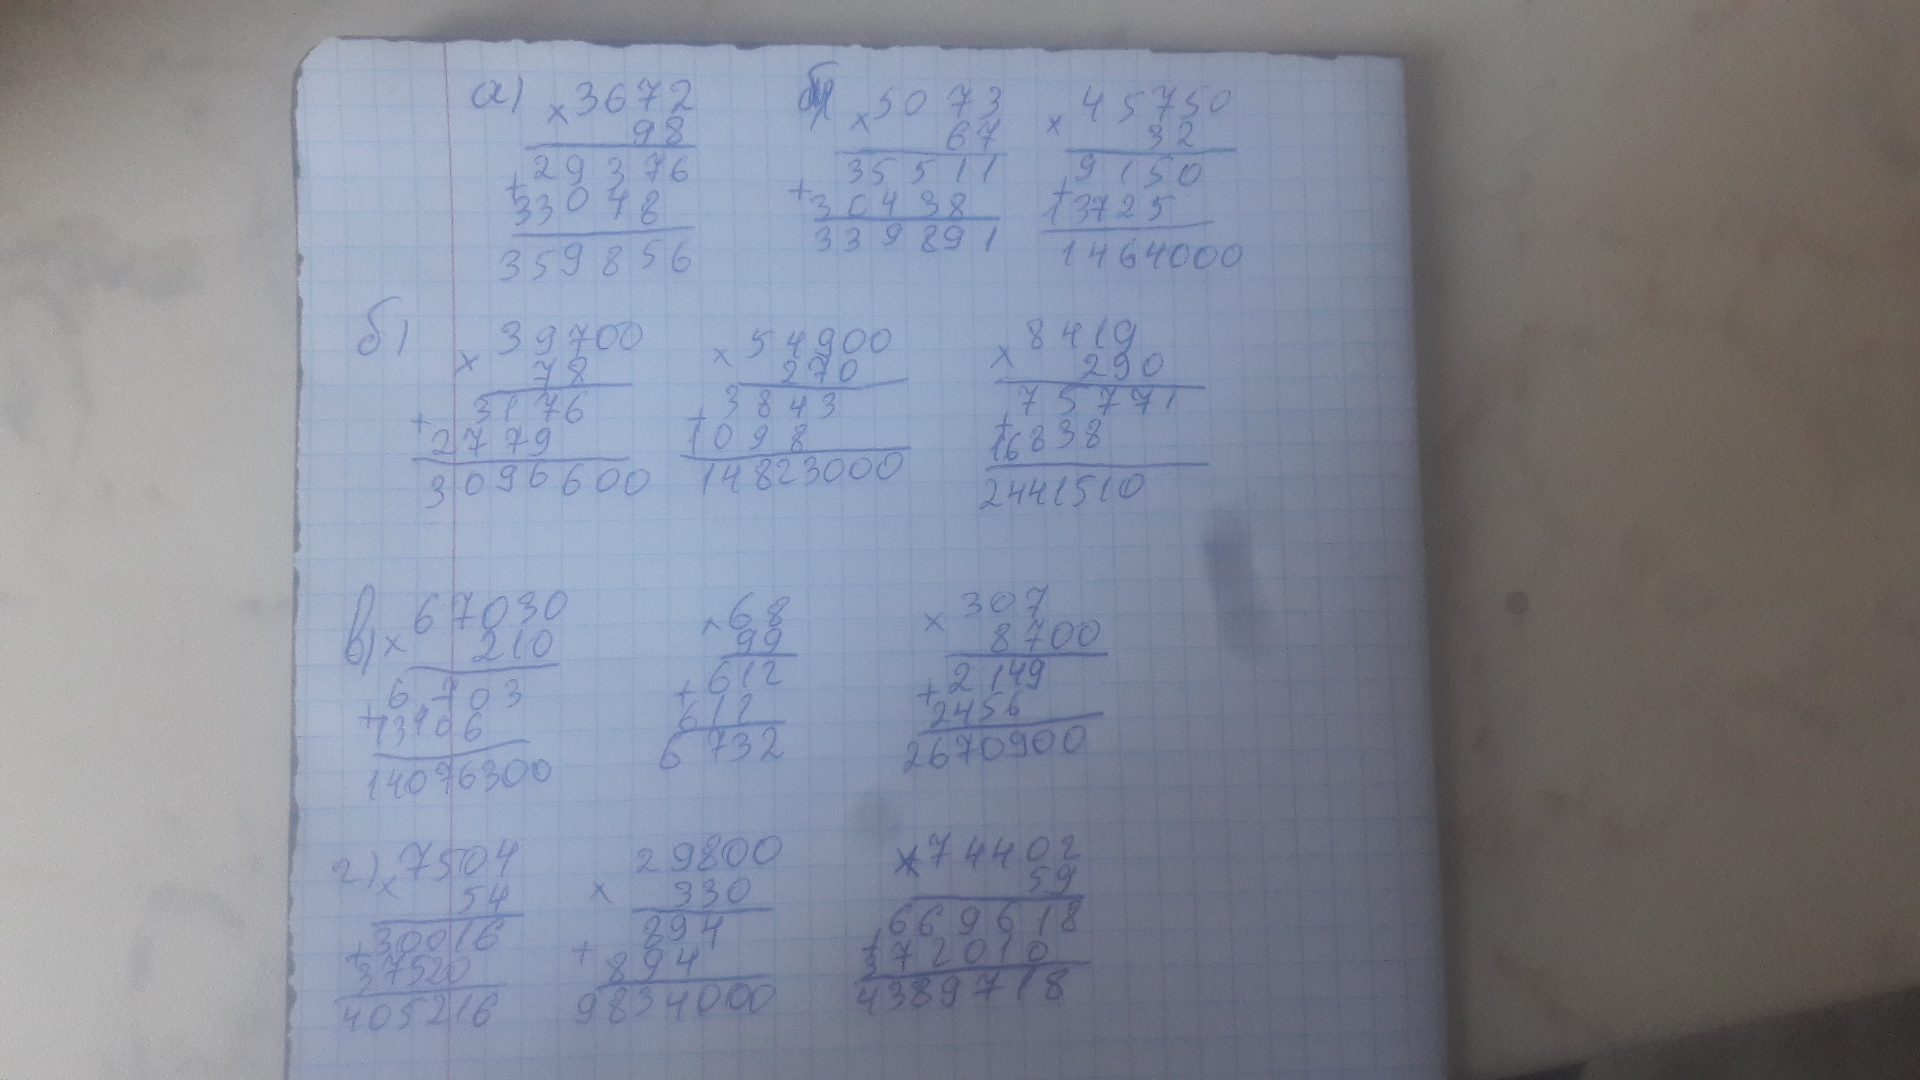 а) × 3672   × 5073   × 45750
98   67   32
29376   35511   9150
+ 33048   + 30438   + 13725
359856   339891   1464000
б) × 39700   × 54900   × 8419
78   270   290
3176   3843   75771
+ 2779   + 1098   + 16838
3096600   14823000   2441510
в) × 67030   × 68   × 307
210   99   8700
6703   612   2149
+ 13406   + 612   + 2456
14076300   6732   2670900
г) × 7504   × 29800   × 74402
54   330   59
30016   894   669618
+ 37520   + 894   + 372010
405216   9834000   4389718